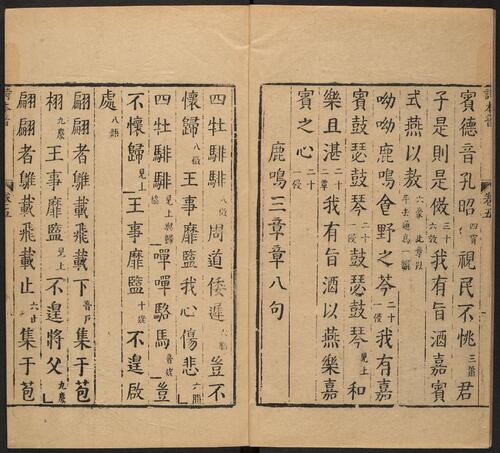 詩本音 卷五
賓德音孔昭四宵視民不恌三蕭君
子是則是傚三十六效我有旨酒嘉賓
式燕以敖六豪此章以平去通爲一韻
呦呦鹿鳴食野之芩二十一侵我有嘉
賓鼓瑟鼓琴二十一侵鼓瑟鼓琴見上和
樂且湛二十二覃我有旨酒以燕樂嘉
賓之心二十一侵
鹿鳴三章章八句
四牡騑騑八微周道倭遲六脂豈不
懷歸八微王事靡盬我心傷悲六脂
四牡騑騑見上與歸協嘽嘽駱馬音姥豈
不懷歸見上王事靡盬十姥不遑啟
處八語
翩翩者鵻載飛載下音戶集于苞
栩九麌王事靡盬見上不遑將父九麌
翩翩者鵻載飛載止六止集于苞
詩本音 卷五